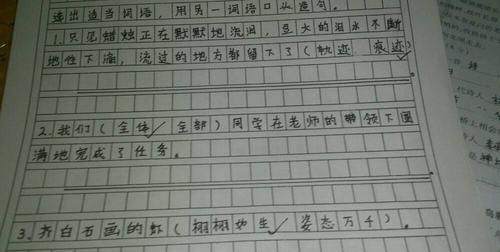 选出适当词语，用另一词语口头造句。
1.只见蜡烛正在默默地流泪，豆大的泪水不断
地往下淌，流过的地方都留下了(轨迹 痕迹)
。
2.我们(全体✓ 全部)同学在老师的带领下圆
满地完成了任务。
3.齐白石画的虾(栩栩如生✓ 姿态万千)。